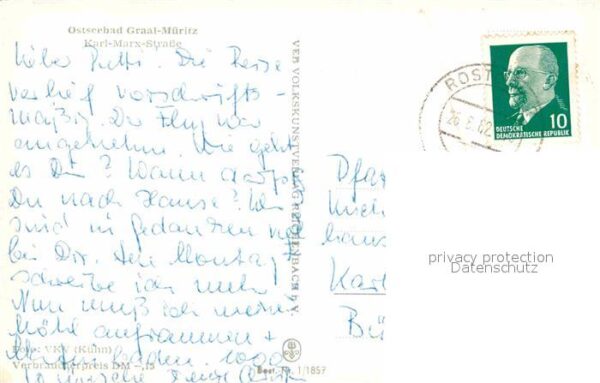 Ostseebad Graal-Müritz
Karl-Marx-Straße
Liebe Putti. Die Reise
verlief vorschrifts-
mäßig. Der Flug war
angenehm. Wie geht
es Dir? Wann darfst
Du nach Hause? Wir
sind in Gedanken viel
bei Dir. Den Montag
schreibe ich mehr
Nun muß ich meine
Höhle aufräumen +
baden. 1000
Foto: VKV (Kühn)
Verbraucherpreis DM -,15
VEB VOLKSKUNSTVERLAG REICHENBACH i. V.
Best. Nr. 1/1857
ROST
26.6.62
10
DEUTSCHE
DEMOKRATISCHE REPUBLIK
Karl
privacy protection
Datenschutz